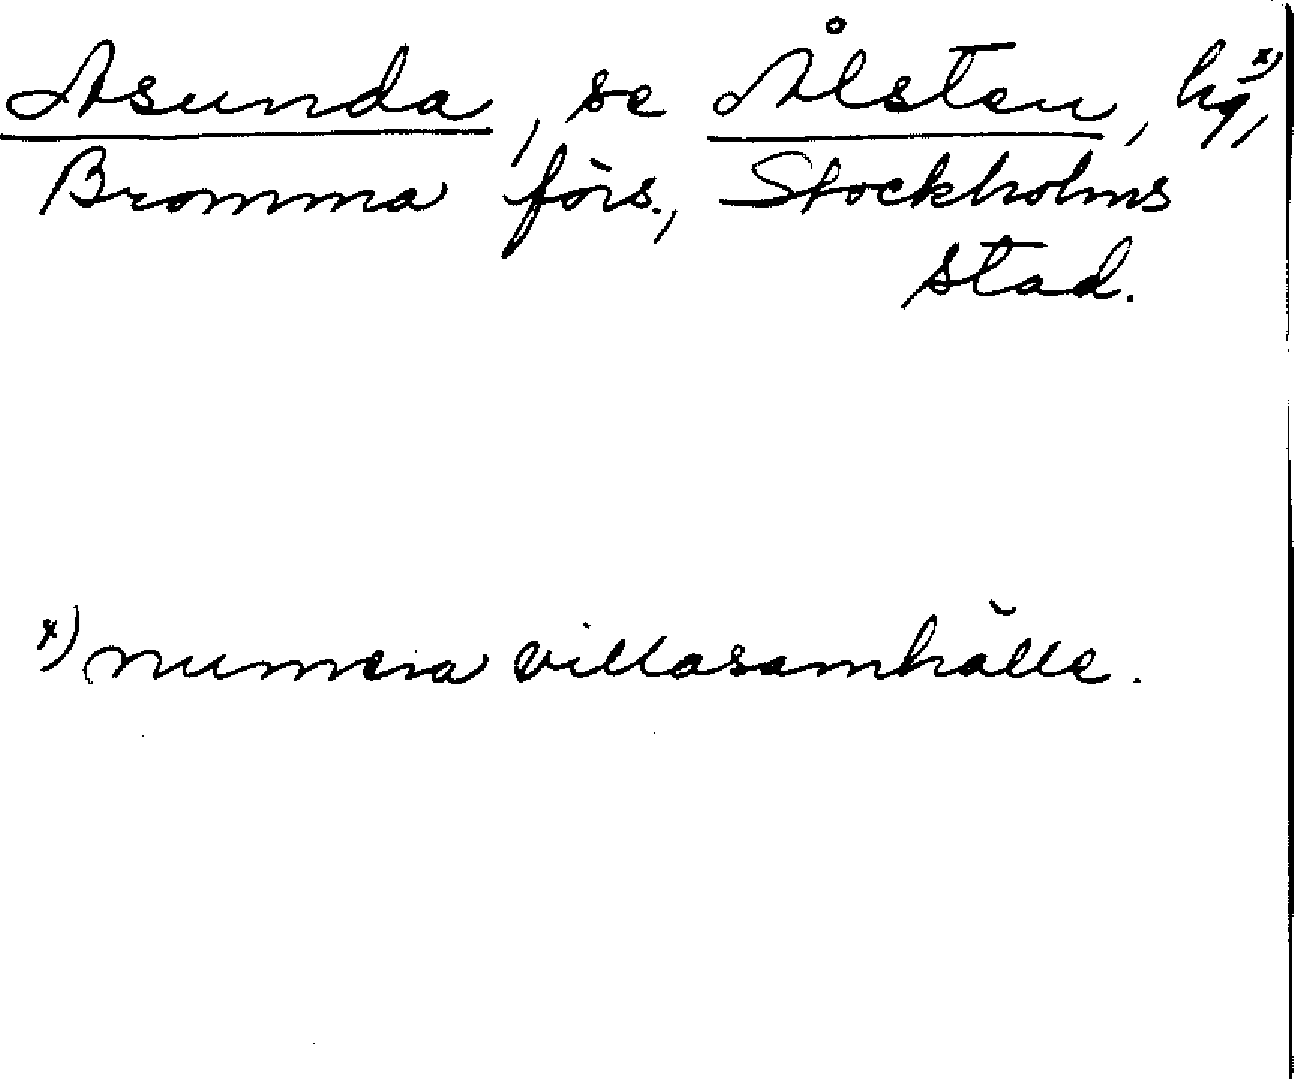 Asunda, se Ålsten, hg x),
Bromma förs., Stockholms
stad.
x) numera villasamhälle.